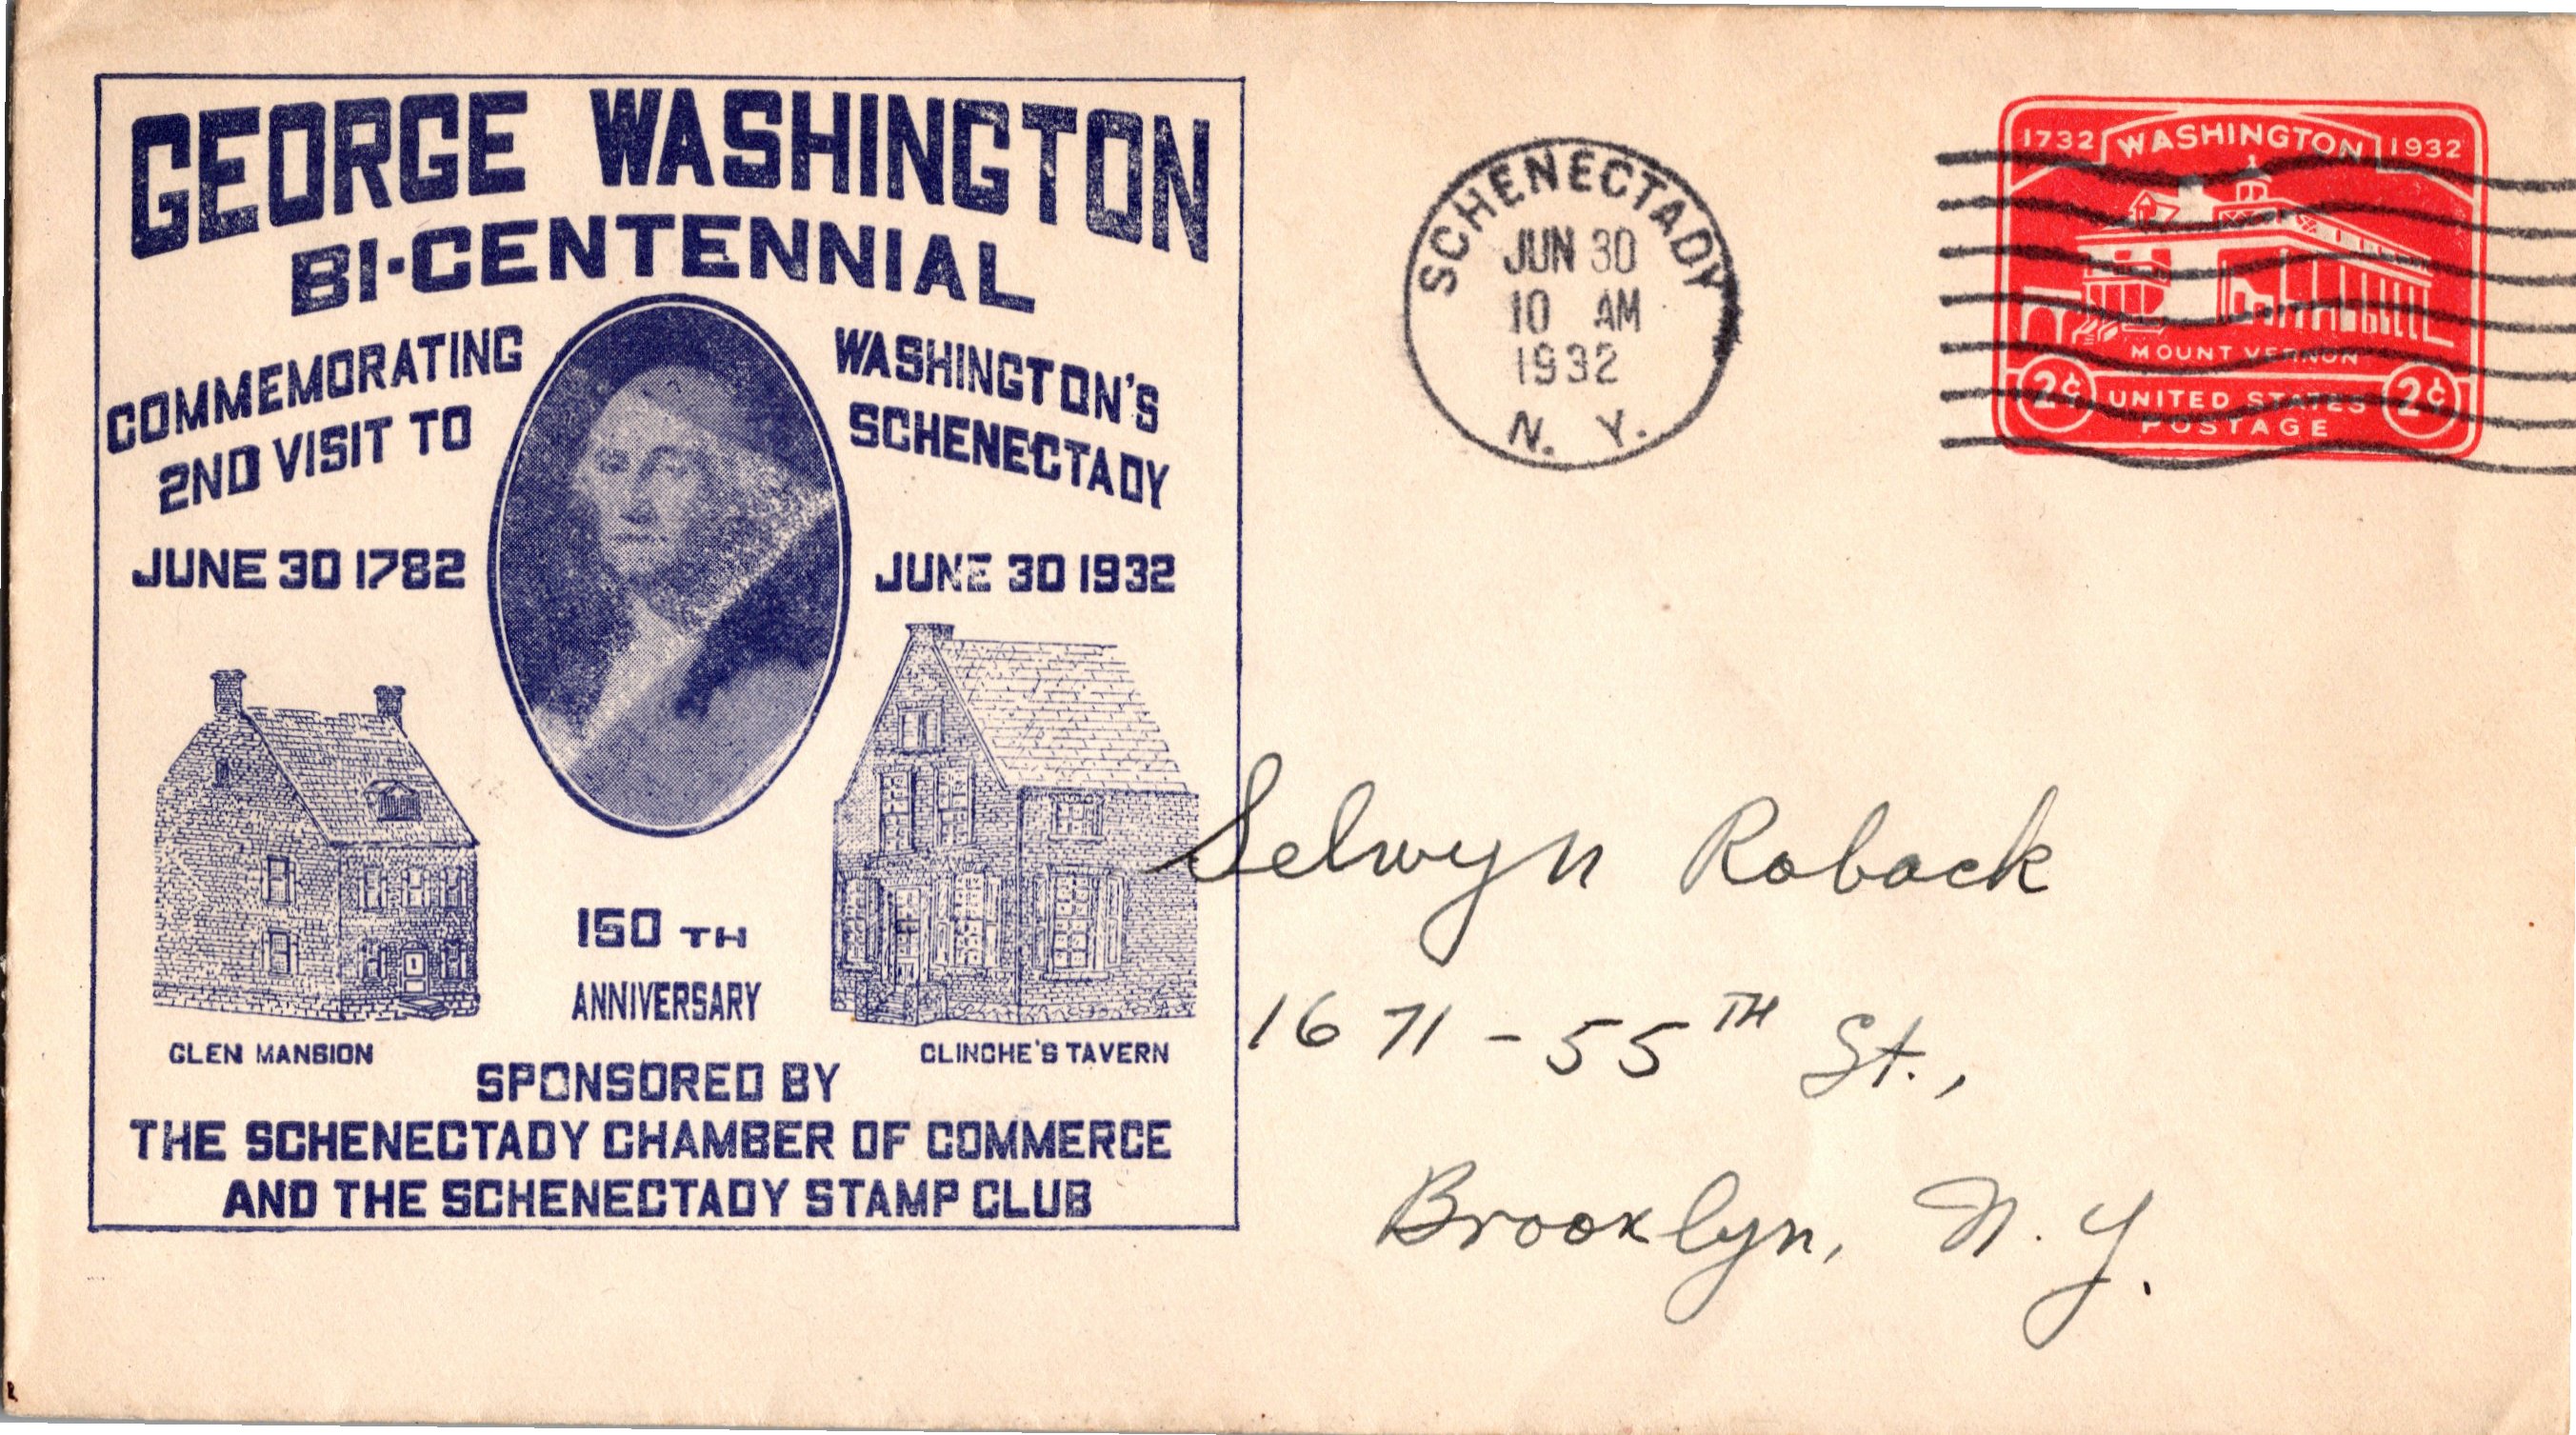 GEORGE WASHINGTON
BI-CENTENNIAL
COMMEMORATING WASHINGTON'S
2ND VISIT TO SCHENECTADY
JUNE 30 1782 JUNE 30 1932
150 TH
ANNIVERSARY
GLEN MANSION CLINCHE'S TAVERN
SPONSORED BY
THE SCHENECTADY CHAMBER OF COMMERCE
AND THE SCHENECTADY STAMP CLUB
SCHENECTADY
JUN 30
10 AM
1932
N. Y.
1732 WASHINGTON 1932
MOUNT VERNON
2¢ UNITED STATES 2¢
POSTAGE
Selwyn Roback
1671 - 55TH St.,
Brooklyn, N. Y.